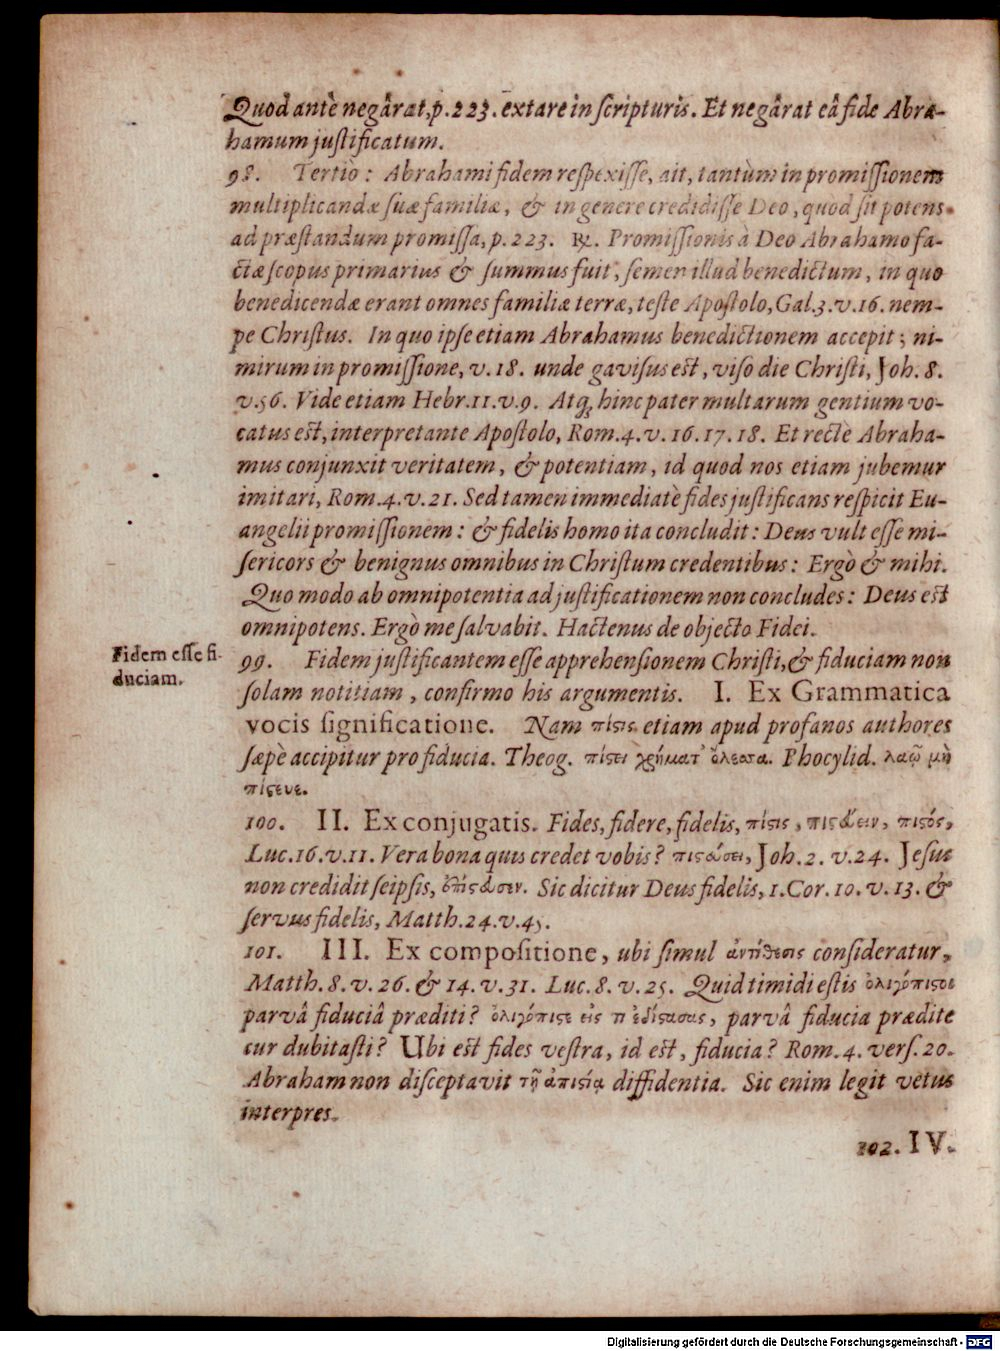 Quod antè negârat, p. 223. extare in scripturis. Et negârat eâ fide Abra-
hamum justificatum.
98. Tertiò: Abrahami fidem respexisse, ait, tantùm in promissionem
multiplicandæ suæ familiæ, & in genere credidisse Deo, quod sit potens
ad præstandum promissa, p. 223. ℞. Promissionis à Deo Abrahamo fa-
ctæ scopus primarius & summus fuit, semen illud benedictum, in quo
benedicendæ erant omnes familiæ terræ, teste Apostolo, Gal. 3. v. 16. nem-
pe Christus. In quo ipse etiam Abrahamus benedictionem accepit; ni-
mirum in promissione, v. 18. unde gavisus est, viso die Christi, Joh. 8.
v. 56. Vide etiam Hebr. 11. v. 9. Atq; hinc pater multarum gentium vo-
catus est, interpretante Apostolo, Rom. 4. v. 16. 17. 18. Et rectè Abraha-
mus conjunxit veritatem, & potentiam, id quod nos etiam jubemur
imitari, Rom. 4. v. 21. Sed tamen immediatè fides justificans respicit Eu-
angelii promissionem: & fidelis homo ita concludit: Deus vult esse mi-
sericors & benignus omnibus in Christum credentibus: Ergò & mihi.
Quo modo ab omnipotentia ad justificationem non concludes: Deus est
omnipotens. Ergò me salvabit. Hactenus de objecto Fidei.
Fidem esse fi-
duciam.
99. Fidem justificantem esse apprehensionem Christi, & fiduciam non
solam notitiam, confirmo his argumentis. I. Ex Grammatica
vocis significatione. Nam πίϛις etiam apud profanos authores
sæpè accipitur pro fiducia. Theog. πίϛει χρήματ' ὄλεσσα. Phocylid. λαῷ μὴ
πίϛευε.
100. II. Ex conjugatis. Fides, fidere, fidelis, πίϛις, πιϛεύειν, πιϛός,
Luc. 16. v. 11. Vera bona quis credet vobis? πιϛεύσει, Joh. 2. v. 24. Jesus
non credidit seipsis, ἐπίϛευσεν. Sic dicitur Deus fidelis, 1. Cor. 10. v. 13. &
servus fidelis, Matth. 24. v. 45.
101. III. Ex compositione, ubi simul ἀντίθεσις consideratur,
Matth. 8. v. 26. & 14. v. 31. Luc. 8. v. 25. Quid timidi estis ὀλιγόπιϛοι
parvâ fiduciâ præditi? ὀλιγόπιϛε εἰς τι ἐδίϛασας, parvâ fiducia prædite
cur dubitasti? Ubi est fides vestra, id est, fiducia? Rom. 4. vers. 20.
Abraham non disceptavit τῇ ἀπιϛίᾳ diffidentia. Sic enim legit vetus
interpres.
102. IV.
Digitalisierung gefördert durch die Deutsche Forschungsgemeinschaft - DFG